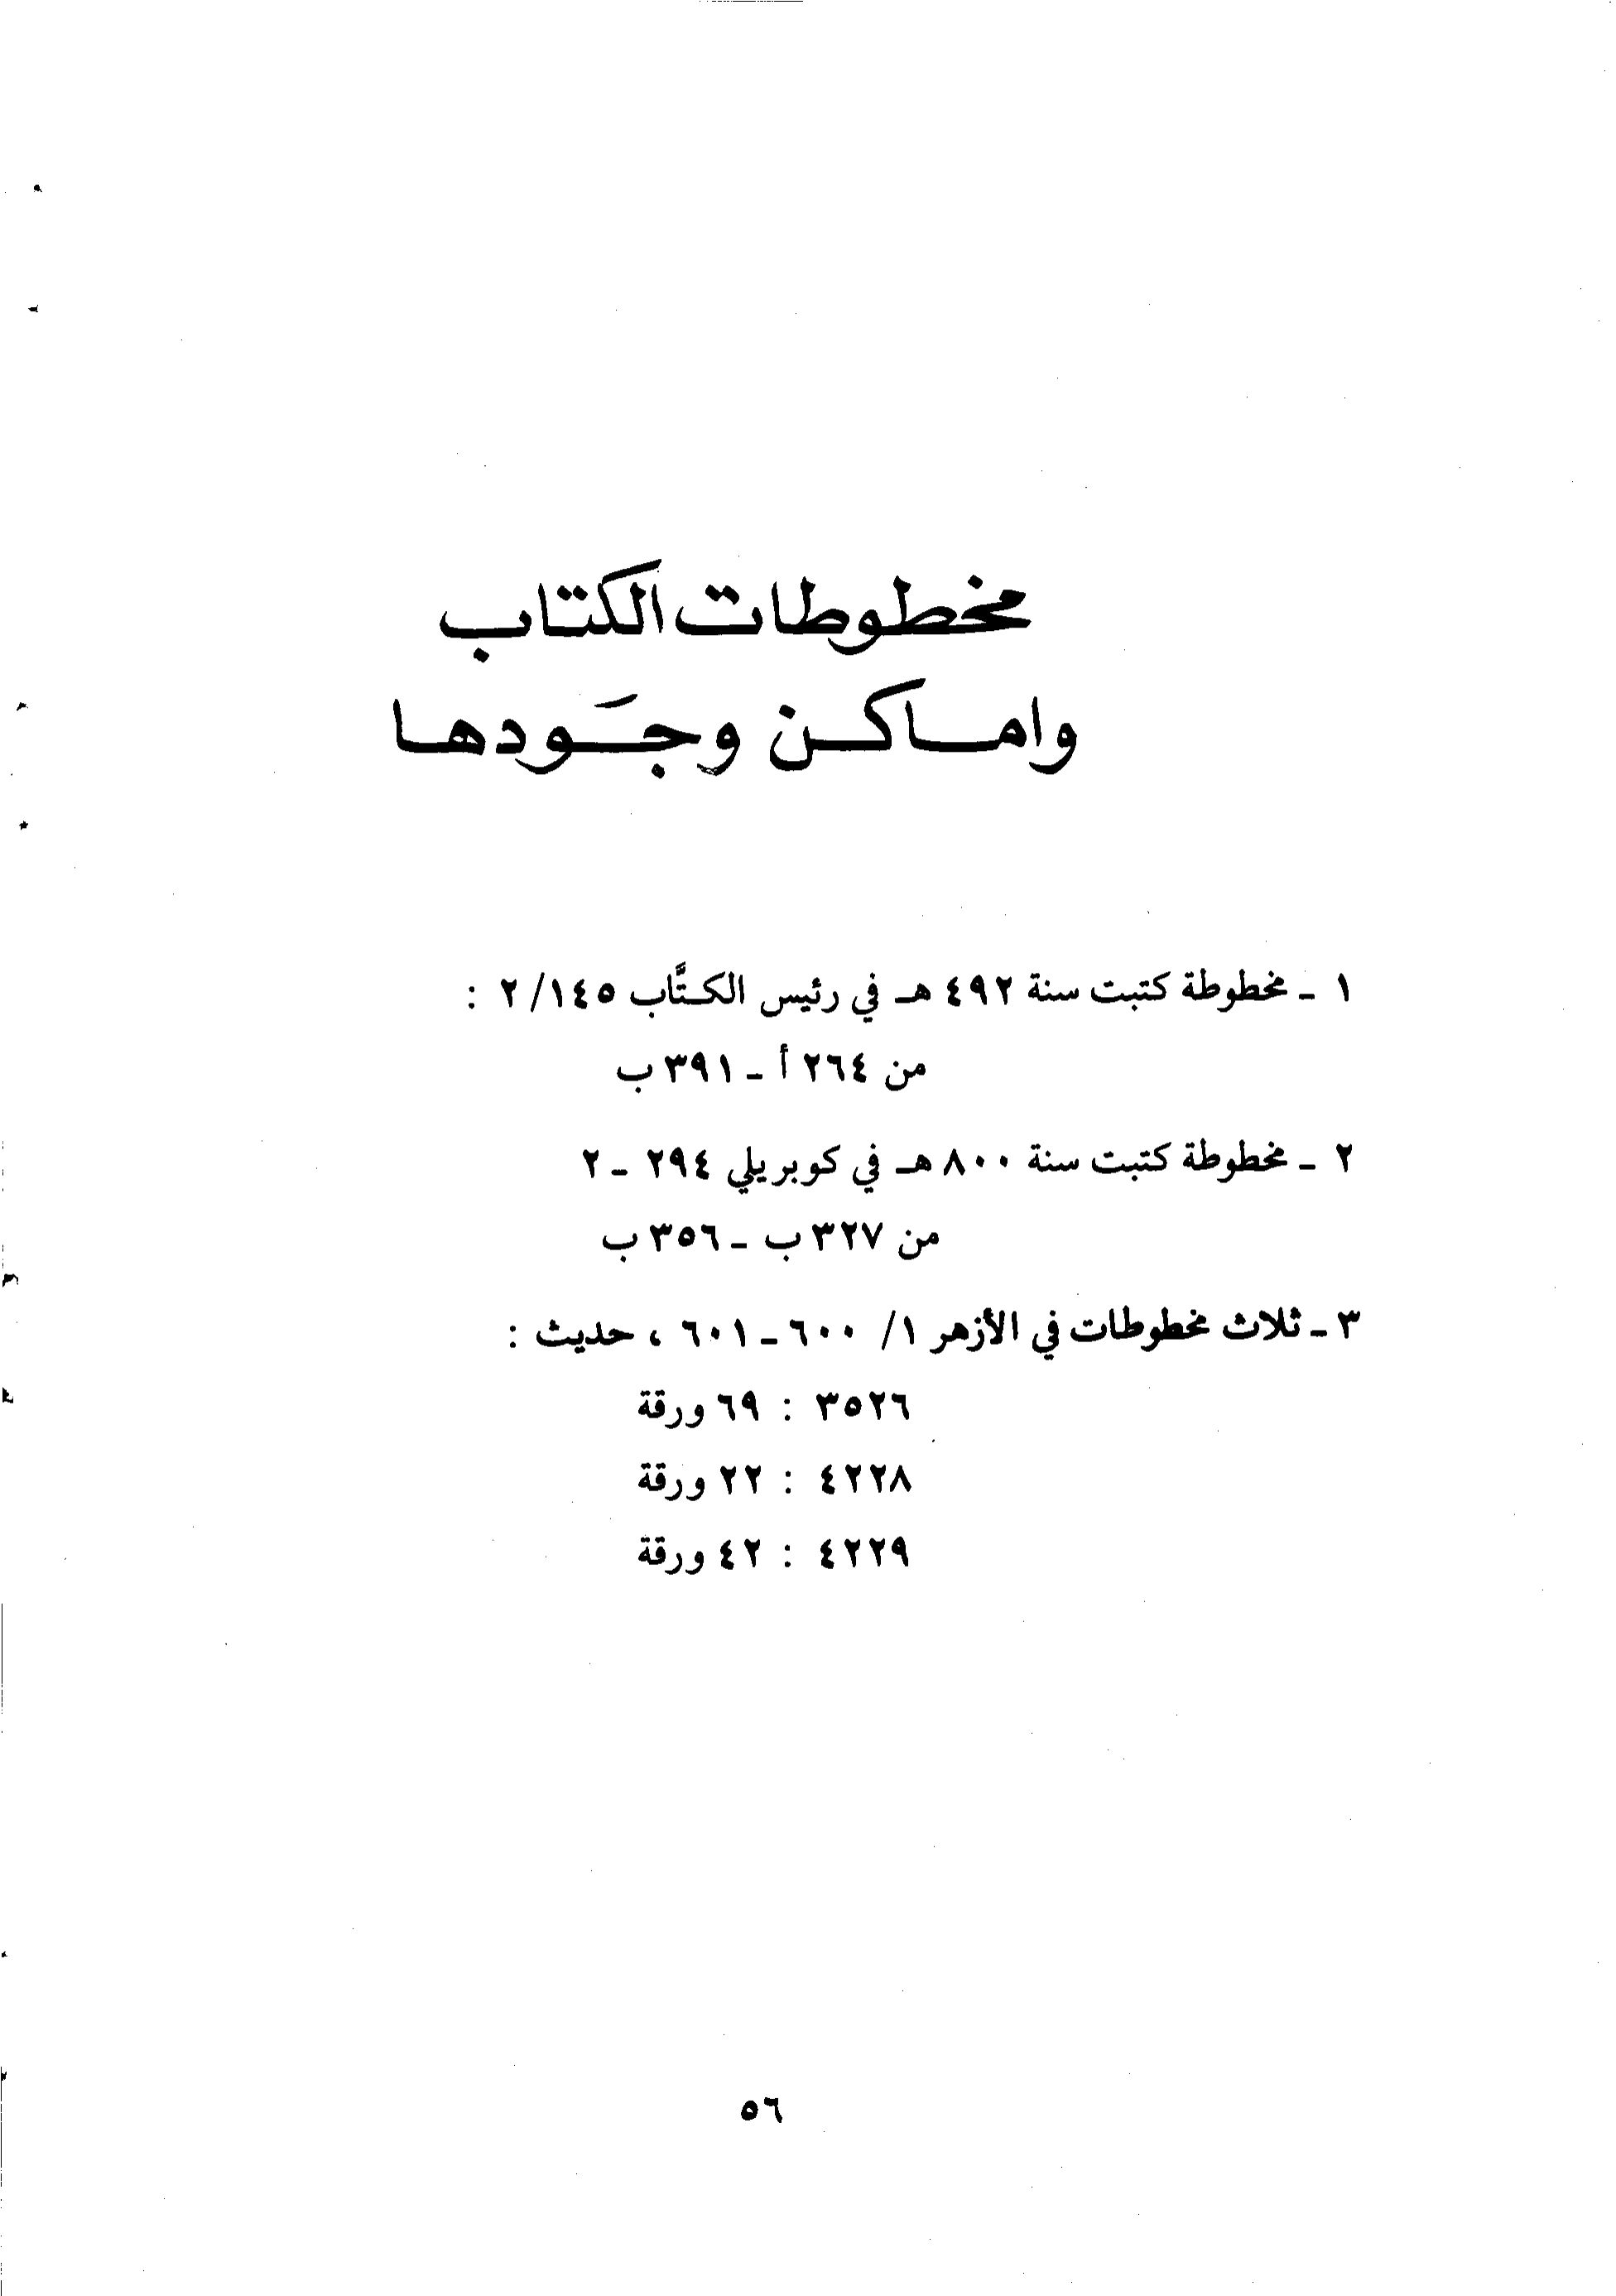 مخطوطات الكتاب
واماكن وجَودها
١ ـ مخطوطة كتبت سنة ٤٩٢ هـ في رئيس الكتَّاب ١٤٥/٢ :
من ٢٦٤ أ ـ ٣٩١ ب
٢ ـ مخطوطة كتبت سنة ٨٠٠ هـ في كوبريلي ٢٩٤ ـ ٢
من ٣٢٧ ب ـ ٣٥٦ ب
٣ ـ ثلاث مخطوطات في الأزهر ١/ ٦٠٠ ـ ٦٠١ ، حديث :
٣٥٢٦ : ٦٩ ورقة
٤٢٢٨ : ٢٢ ورقة
٤٢٢٩ : ٤٢ ورقة
٥٦